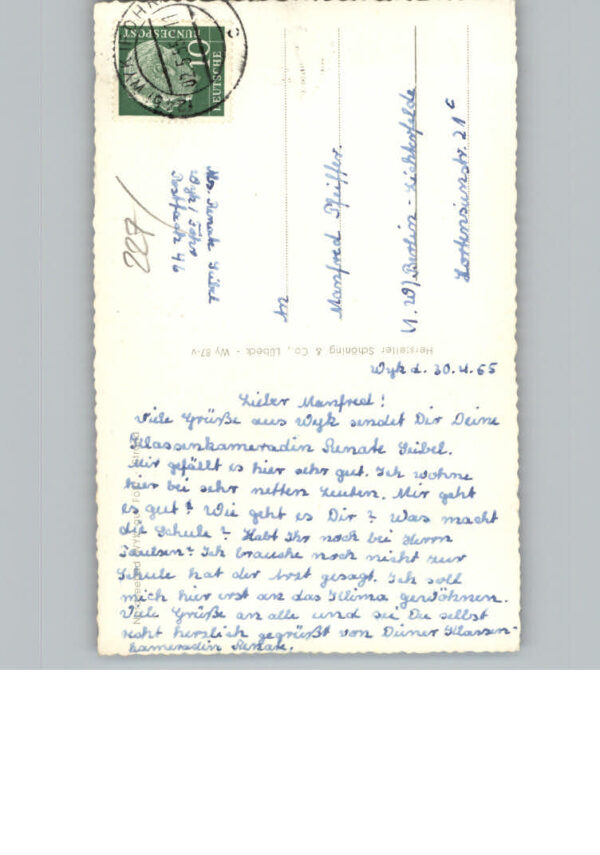 DEUTSCHE
BUNDESPOST
10
227/
Abs. Renate Seibel
Wyk / Föhr
Postfach 46
An
Manfred Pfeiffer
(1. W) Berlin - Lichterfelde
Hortensienstr. 21 c
Hersteller Schöning & Co., Lübeck - Wy 87-v
Wyk d. 30.4.65
Lieber Manfred!
Viele Grüße aus Wyk sendet Dir Deine
Klassenkameradin Renate Seibel.
Mir gefällt es hier sehr gut. Ich wohne
hier bei sehr netten Leuten. Mir geht
es gut! Wie geht es Dir? Was macht
die Schule? Habt Ihr noch bei Herrn
Paulsen? Ich brauche noch nicht zur
Schule hat der Arzt gesagt. Ich soll
mich hier erst an das Klima gewöhnen.
Viele Grüße an alle und sei Du selbst
recht herzlich gegrüßt von Deiner Klassen-
kameradin Renate.